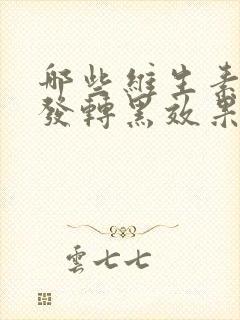 哪些維生素
發轉黑效果
雲七七